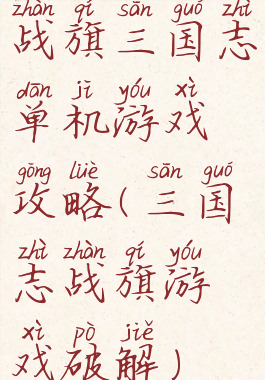 zhàn qí sān guó zhì
战旗三国志
dān jī yóu xì
单机游戏
gōng lüè sān guó
攻略(三国
zhì zhàn qí yóu
志战旗游
xì pò jiě
戏破解)